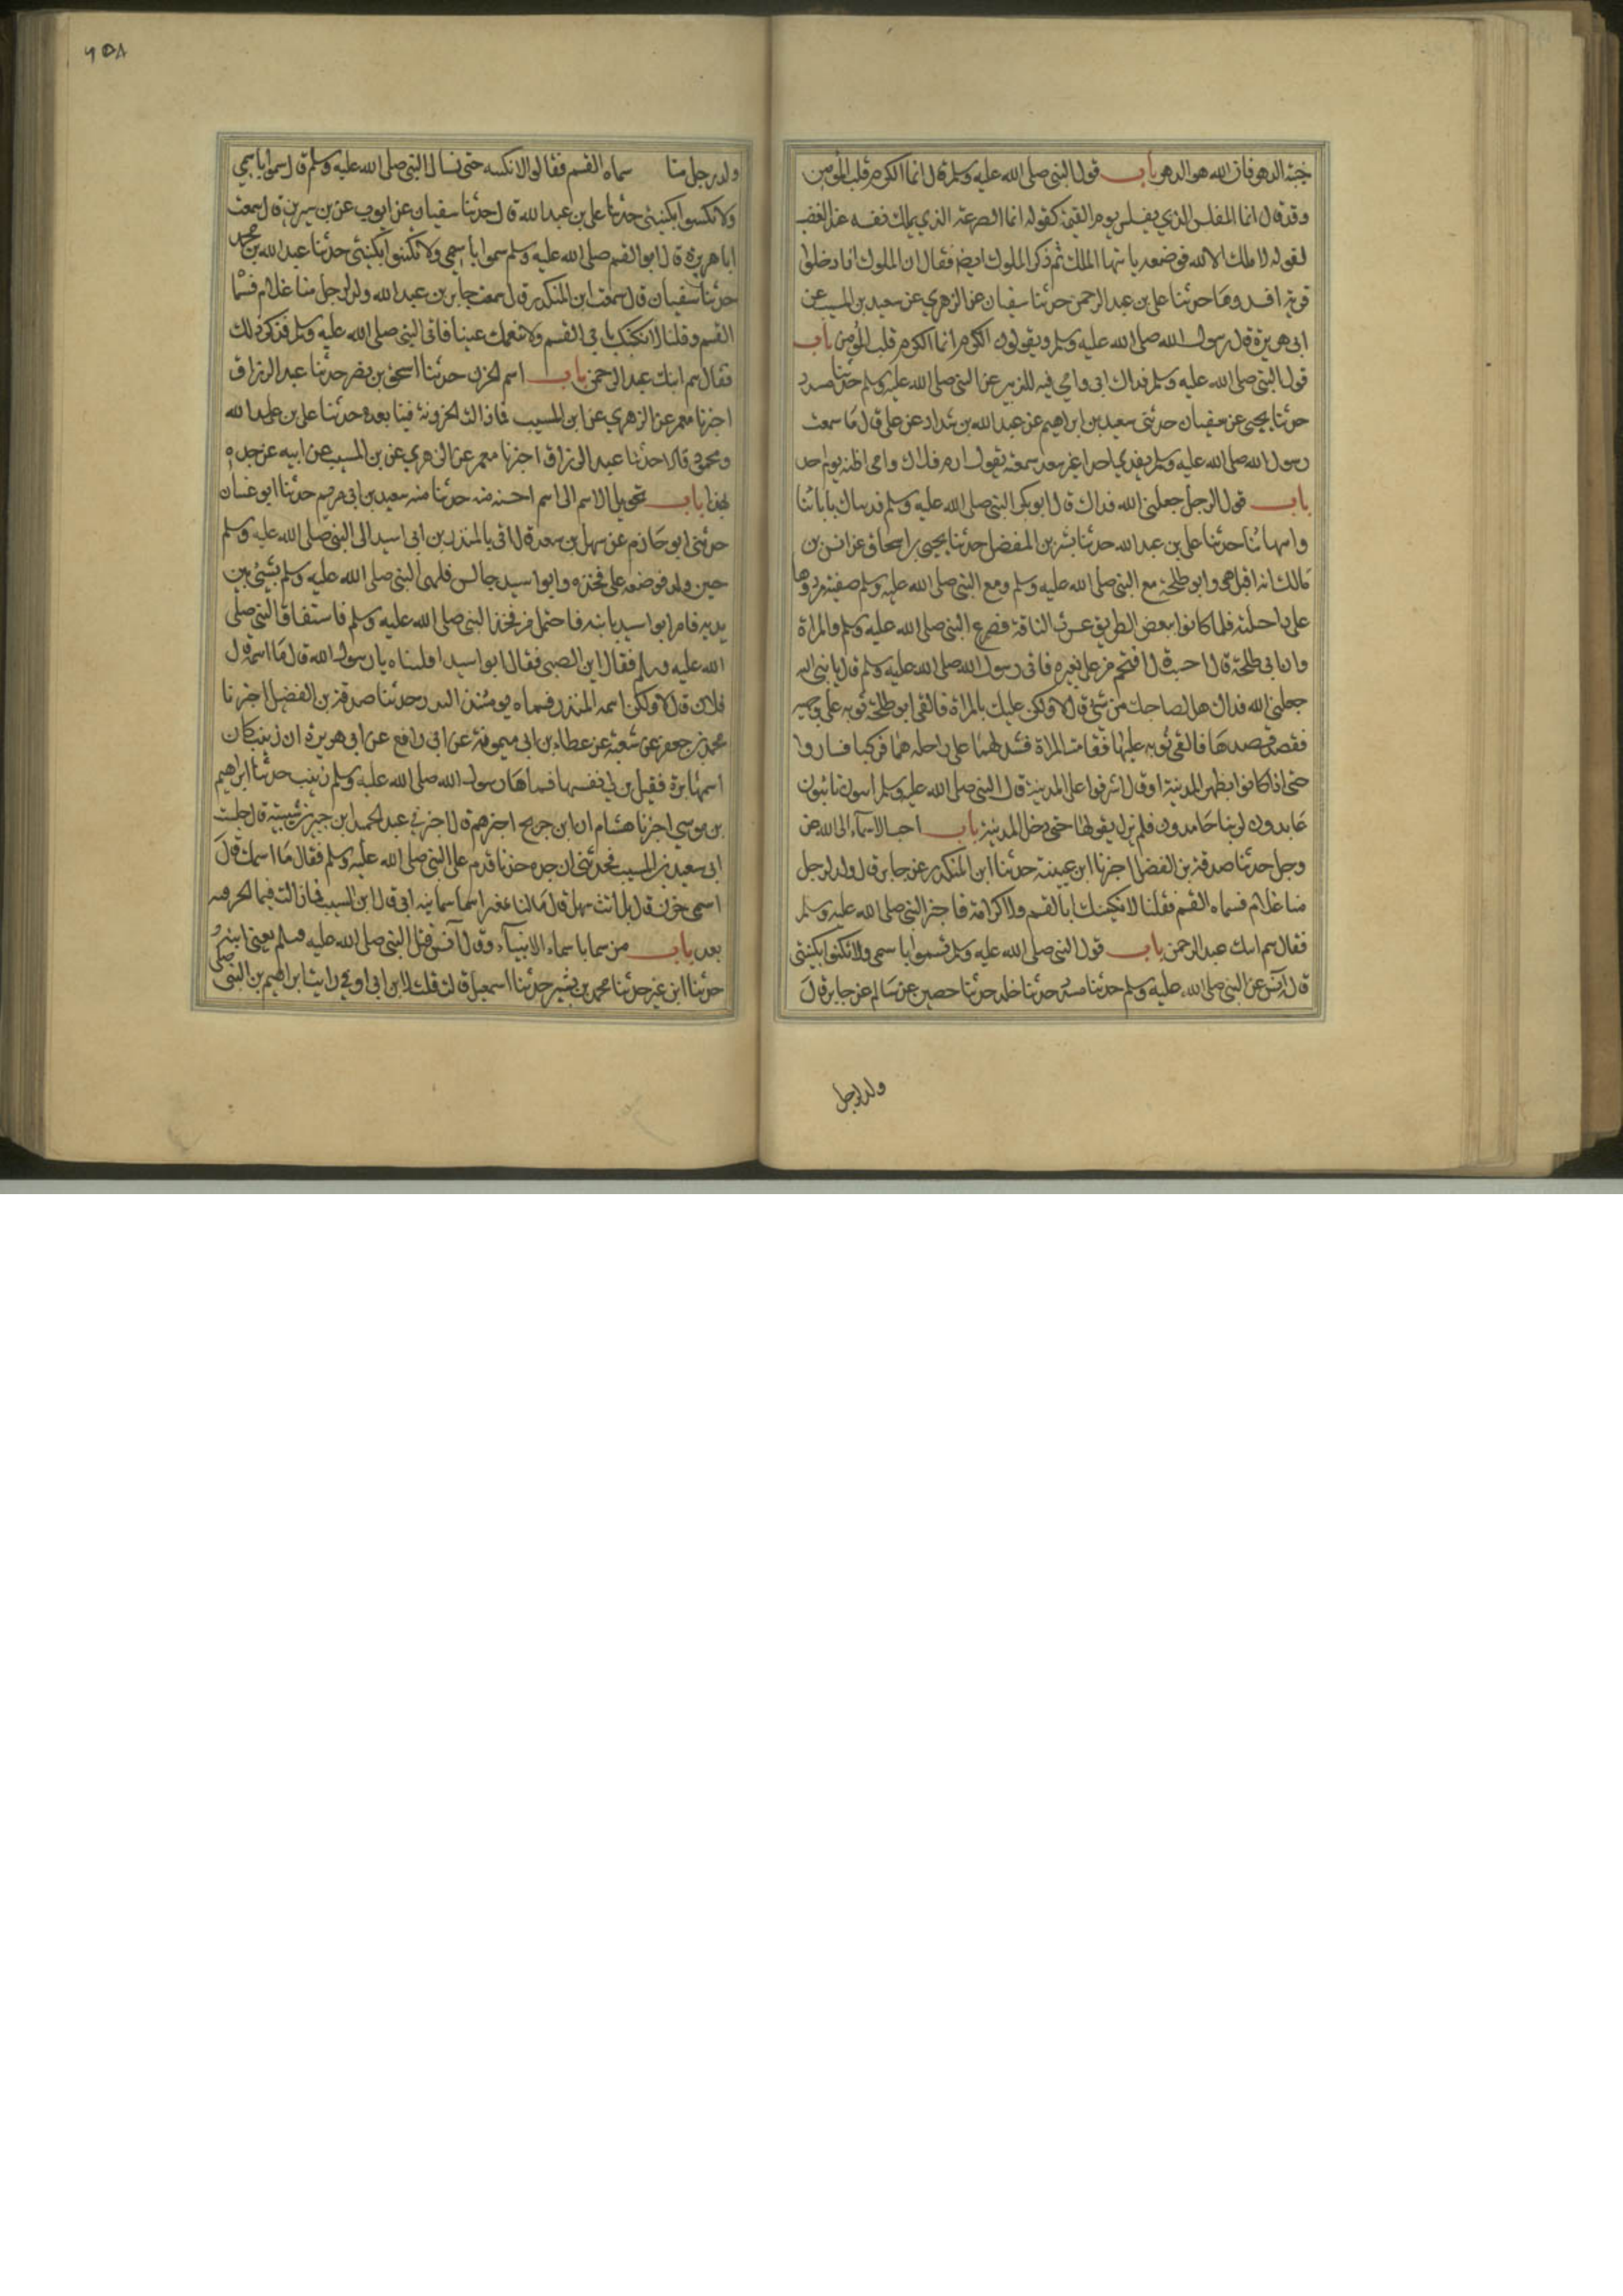 خيبة الدهر فان الله هو الدهر باب قول النبي صلى الله عليه وسلم قال انما الكرم قلب المؤمن
وقد قال انما المفلس الذي يفلس يوم القيمة كقوله انما الصرعة الذي يملك نفسه عند الغضب
لقوله لا ملك الا لله فوصفه بانتهاء الملك ثم ذكر الملوك ايضا فقال ان الملوك اذا دخلوا
قرية افسدوها حدثنا على بن عبد الرحمن حدثنا سفيان عن الزهري عن سعيد بن المسيب عن
ابى هريرة قال رسول الله صلى الله عليه وسلم ويقولون الكرم انما الكرم قلب المؤمن باب
قول النبي صلى الله عليه وسلم فداك ابى وامي فيه الزبير عن النبي صلى الله عليه وسلم حدثنا مسدد
حدثنا يحيى عن سفيان حدثنى سعيد بن ابراهيم عن عبد الله بن شداد عن على قال ما سمعت
رسول الله صلى الله عليه وسلم يفدي احدا غير سعد سمعته يقول ارم فداك وامى اظنه يوم احد
باب قول الرجل جعلنى الله فداك قال ابو بكر النبي صلى الله عليه وسلم فديناك بابائنا
وامهاتنا حدثنا على بن عبد الله حدثنا بشر بن المفضل حدثنا يحيى بن اسحاق عن انس بن
مالك انه اقبل هو وابو طلحة مع النبي صلى الله عليه وسلم ومع النبي صلى الله عليه وسلم صفية مردوها
على راحلته فلما كانوا ببعض الطريق عثرت الناقة فصرع النبي صلى الله عليه وسلم والمراة
وان ابى طلحة قال احسب قال اقتحم عن بعيره فاتى رسول الله صلى الله عليه وسلم قال يا نبى الله
جعلنى الله فداك هل اصابك من شئ قال لا ولكن عليك بالمراة فالقى ابو طلحة ثوبه على وجهه
فقصد قصدها فالقى ثوبه عليها فقامت المراة فشد لهما على راحلتهما فركبا فساروا
حتى اذا كانوا بظهر المدينة او قال اشرفوا على المدينة قال النبي صلى الله عليه وسلم ايبون تائبون
عابدون لربنا حامدون فلم يزل يقولها حتى دخل المدينة باب احب الاسماء الى الله عز
وجل حدثنا صدقة بن الفضل اخبرنا ابن عيينة حدثنا ابن المنكدر عن جابر قال ولد لرجل
منا غلام فسماه القسم فقلنا لا نكنيك ابا القسم ولا كرامة فاخبر النبي صلى الله عليه وسلم
فقال سم ابنك عبد الرحمن باب قول النبي صلى الله عليه وسلم تسموا باسمى ولا تكنوا بكنيتى
قال انس عن النبي صلى الله عليه وسلم حدثنا مسدد حدثنا خلد حدثنا حصين عن سالم عن جابر قال
ولد لرجل
٦٥٨
ولد لرجل منا سماه القسم فقالوا لا نكنيه حتى نسال النبي صلى الله عليه وسلم قال سموا باسمي
ولا تكنوا بكنيتى حدثنا على بن عبد الله قال حدثنا سفيان عن ايوب عن بن سيرين قال سمعت
ابا هريرة قال ابو القسم صلى الله عليه وسلم سموا باسمى ولا تكتنوا بكنيتى حدثنا عبد الله بن محمد
حدثنا سفيان قال سمعت ابن المنكدر قال سمعت جابر بن عبد الله ولد لرجل منا غلام فسماه
القسم وقلنا لا نكنيك بابى القسم ولا ننعمك عينا فاتى النبي صلى الله عليه وسلم فذكر ذلك
فقال سم ابنك عبد الرحمن باب اسم الحزن حدثنا اسحق بن نصر حدثنا عبد الرزاق
اخبرنا معمر عن الزهري عن ابن المسيب فما زالت الحزونة فينا بعده حدثنا على بن عبد الله
ومحمود قالا حدثنا عبد الرزاق اخبرنا معمر عن الزهري عن بن المسيب عن ابيه عن جده
بهذا باب تحويل الاسم الى اسم احسن منه حدثنا سعيد بن ابى مريم حدثنا ابو غسان
حدثنى ابو حازم عن سهل بن سعد قال اتى بالمنذر بن ابى اسيد الى النبي صلى الله عليه وسلم
حين ولد فوضعه على فخذه وابو اسيد جالس فلهى النبي صلى الله عليه وسلم بشئ بين
يديه فامر ابو اسيد بابنه فاحتمل من فخذ النبي صلى الله عليه وسلم فاستفاق النبي صلى
الله عليه وسلم فقال اين الصبى فقال ابو اسيد اقلبناه يا رسول الله قال ما اسمه قال
فلان قال لا ولكن اسمه المنذر فسماه يومئذ المنذر حدثنا صدقة بن الفضل اخبرنا
محمد بن جعفر عن شعبة عن عطاء بن ابى ميمونة عن ابى رافع عن ابى هريرة ان زينب كان
اسمها برة فقيل تزكي نفسها فسماها رسول الله صلى الله عليه وسلم زينب حدثنا ابراهيم
بن موسي اخبرنا هشام ان ابن جريج اخبرهم قال اخبرني عبد الحميد ابن جبير بن شيبة قال جلست
الى سعيد بن المسيب فحدثنى ان جده حزنا قدم على النبي صلى الله عليه وسلم فقال ما اسمك قال
اسمى حزن قال بل انت سهل قال ما انا بمغير اسما سمانيه ابى قال ابن المسيب فما زالت فينا الحزونة
بعد باب من سما باسماء الانبياء وقال انس قبل النبي صلى الله عليه وسلم يعنى ابنه
حدثنا ابن نمير حدثنا محمد بن بشير حدثنا اسمعيل قال قلت لابن ابى اوفي رايت ابراهيم بن النبي صلى